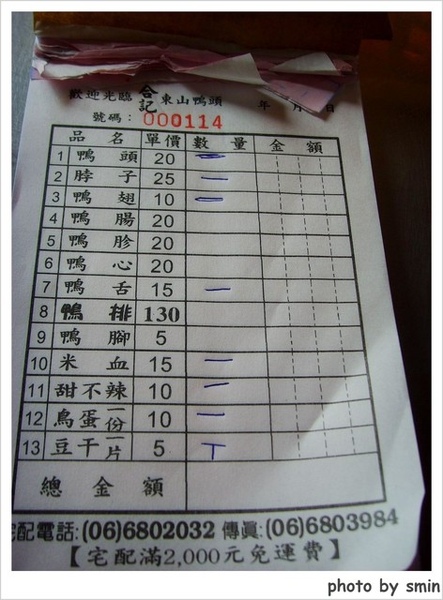 歡迎光臨 合記 東山鴨頭 年 月 日
號碼：000114
品名 單價 數量 金額
1 鴨頭 20 二
2 脖子 25 一
3 鴨翅 10 二
4 鴨腸 20
5 鴨胗 20
6 鴨心 20
7 鴨舌 15 一
8 鴨排 130
9 鴨腳 5
10 米血 15 一
11 甜不辣 10 一
12 鳥蛋一份 10 一
13 豆干一片 5 T
總金額
宅配電話:(06)6802032 傳真:(06)6803984
【宅配滿2,000元免運費】
photo by smin